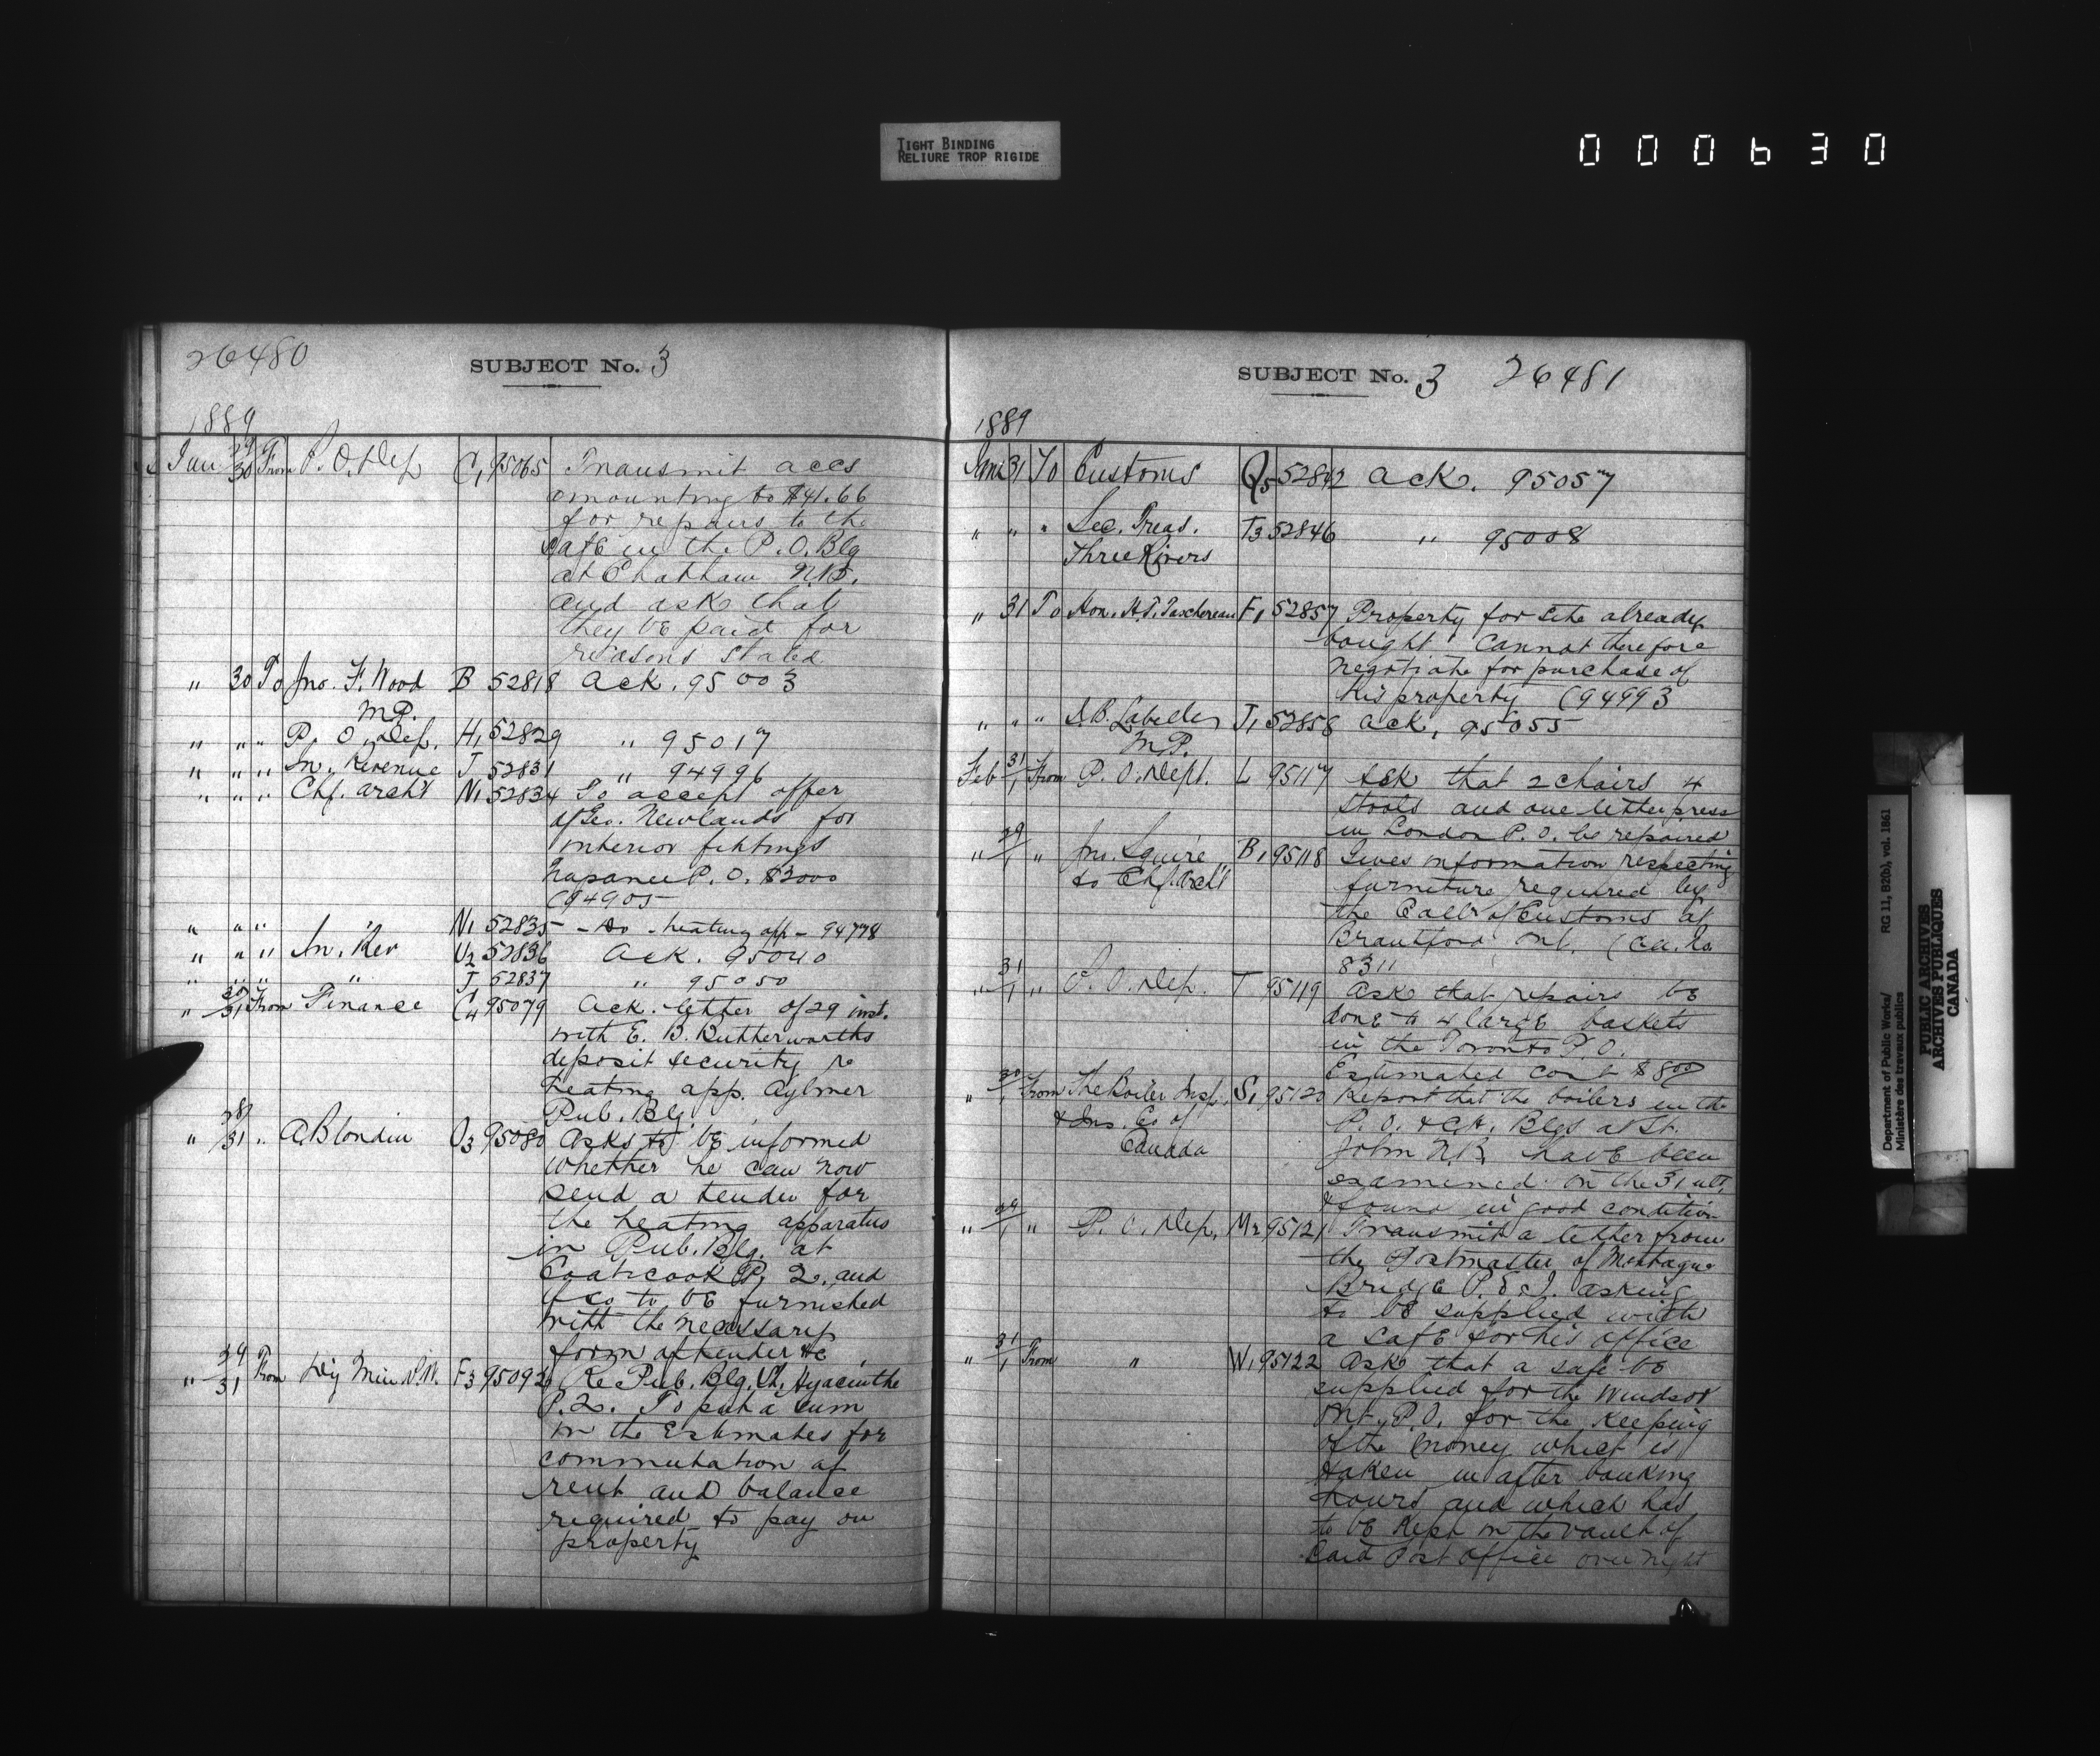 TIGHT BINDING
RELIURE TROP RIGIDE
000630
26480
SUBJECT No. 3
1889
Jan 29/30 From P. O. Dep C1 95065 Transmit accs
amounting to $41.66
for repairs to the
safe in the P. O. Blg
at Chatham N.B.
and ask that
they be paid for
reasons stated
" 30 To Jno. F. Wood B 52818 Ack. 95003
M.P.
" " " P. O. Dep. H1 52829 " 95017
" " " In. Revenue J 52831 " 94996
" " " Chf. Arch't N1 52834 To accept offer
of Geo. Newlands for
interior fittings
Napanee P. O. $3000
(94905
" " " " N1 52835 - Do - heating app - 94778
" " " In. Rev V2 52836 Ack. 95040
" " " " J 52837 " 95050
" 30/31 From Finance C4 95079 Ack. letter of 29 inst.
with E. B. Butterworths
deposit security re
heating app. Aylmer
Pub. Blg.
" 28/31 " A. Blondin O3 95080 Asks to be informed
whether he can now
send a tender for
the heating apparatus
in Pub. Blg. at
Coaticook P. Q. and
if so to be furnished
with the necessary
form of tender &c
" 29/31 From Dy Min P.W. F3 95092 Re Pub. Blg. St. Hyacinthe
P. Q. To put a sum
in the Estimates for
commutation of
rent and balance
required to pay on
property
SUBJECT No. 3 26481
1889
Jan 31 To Customs Q5 52842 Ack. 95057
" " " Sec. Treas. T3 52846 " 95008
Three Rivers
" 31 To Hon. H. T. Taschereau F1 52857 Property for site already
bought. Cannot therefore
negotiate for purchase of
his property (94993
" " " J. B. Labelle J1 52858 Ack, 95055
M.P.
Feb 31/1 From P. O. Dept. L 95117 Ask that 2 chairs 4
stools and one letter press
in London P. O. be repaired
" 29/1 " Jno. Squire B1 95118 Gives information respecting
to Chf. Arch't furniture required by
the Collr of Customs at
Brantford, Ont.
8311
" 31/1 " P. O. Dep. T 95119 Ask that repairs be
done to 4 large baskets
in the Toronto P. O.
Estimated cost $8.00
" 30/1 From The Boiler Insp. S1 95120 Report that the boilers in the
& Ins. Co of P. O. & C.H. Blgs at St.
Canada John N.B. have been
examined on the 31 ult.
& found in good condition
" 29/1 " P. O. Dep. M2 95121 Transmit a letter from
the Postmaster of Montague
Bridge P. E. I. asking
to be supplied with
a safe for his office
" 31/1 From " W1 95122 Ask that a safe be
supplied for the Windsor
Ont. P.O. for the keeping
of the money which is
taken in after banking
hours and which has
to be kept in the vault of
said Post Office over night
Department of Public Works/ RG 11, B2(b), vol. 1861
Ministère des travaux publics
PUBLIC ARCHIVES
ARCHIVES PUBLIQUES
CANADA